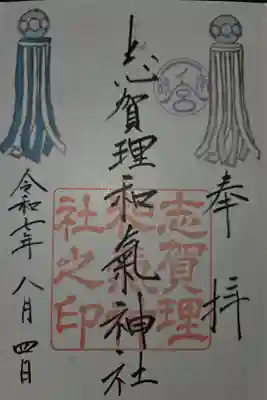 奉拝
志賀理和氣神社
志賀理
和氣神
社之印
令和七年 八月 四日